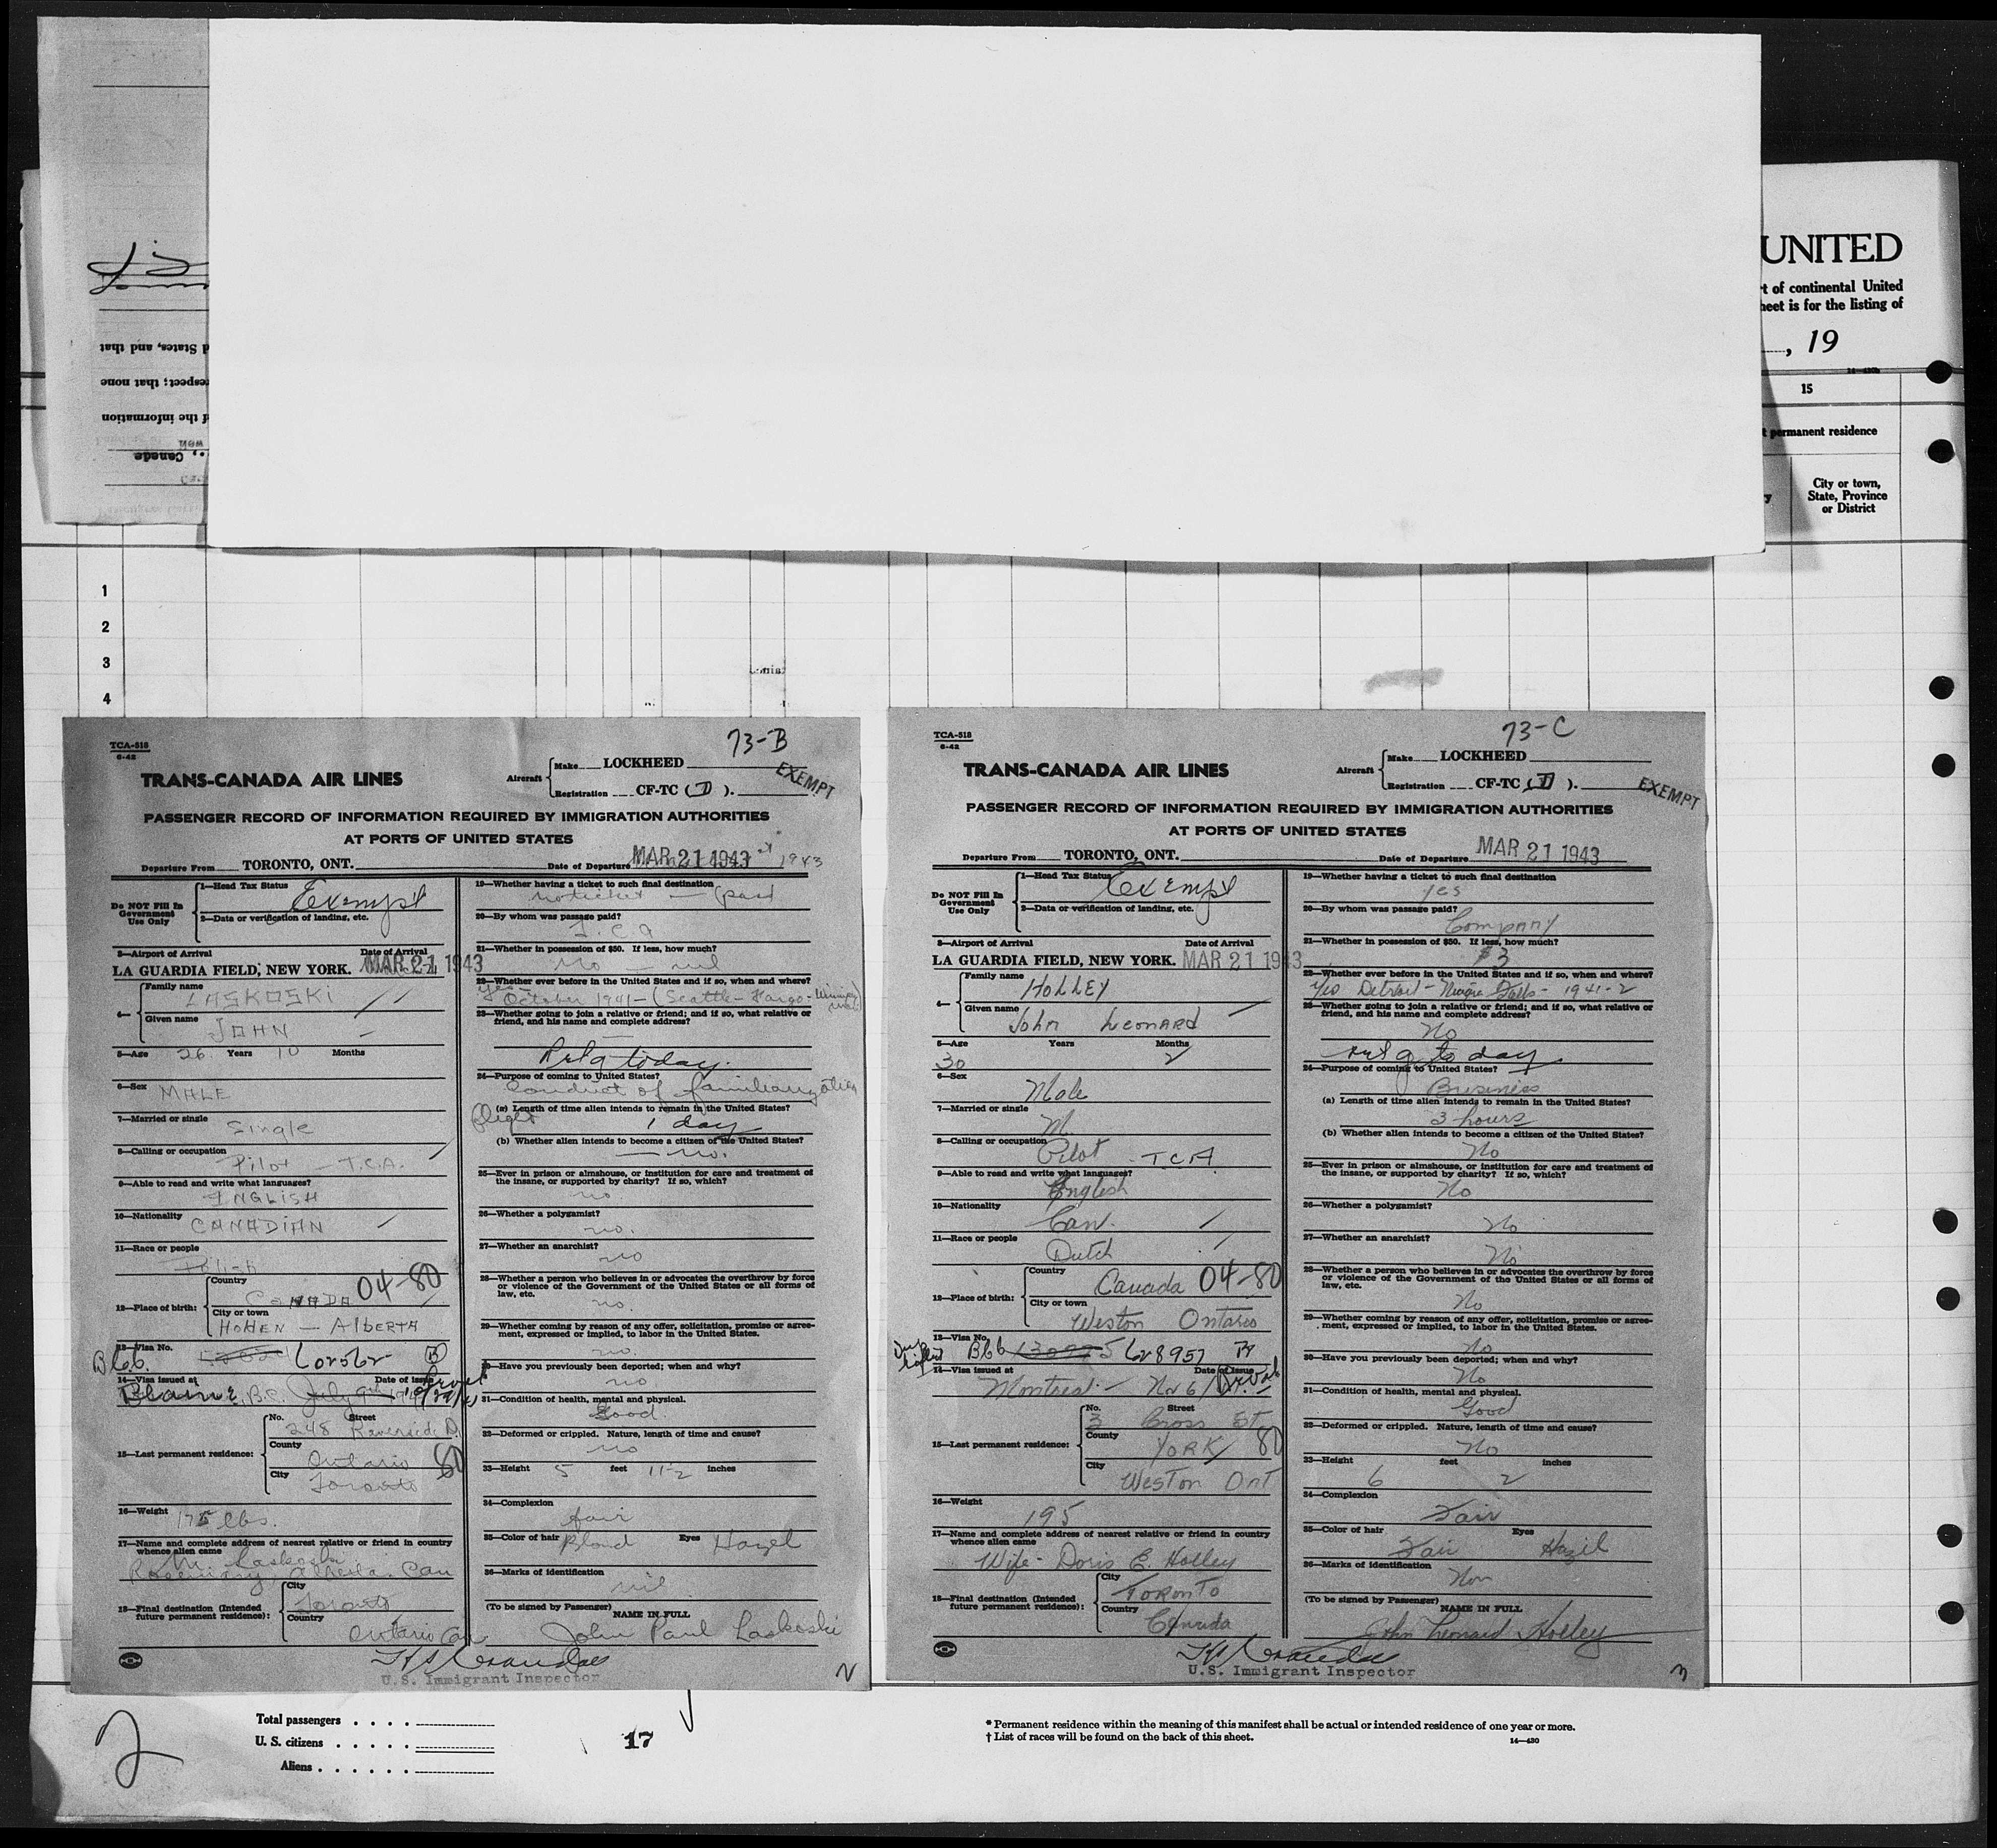 UNITED
t of continental United
heet is for the listing of
, 19
15
permanent residence
City or town,
State, Province
or District
d States, and that
respect; that none
f the information
Canada
1
2
3
4
73-B
TCA-518
6-42
TRANS-CANADA AIR LINES
Aircraft
Make LOCKHEED
Registration CF-TC ( D ).
EXEMPT
PASSENGER RECORD OF INFORMATION REQUIRED BY IMMIGRATION AUTHORITIES
AT PORTS OF UNITED STATES
Departure From TORONTO, ONT.
Date of Departure MAR 21 1943 1943
Do NOT Fill In Government Use Only
1—Head Tax Status Exempt
2—Data or verification of landing, etc.
3—Airport of Arrival Date of Arrival
LA GUARDIA FIELD, NEW YORK. MAR 21 1943
4— Family name LASKOSKI
Given name JOHN
5—Age 26 Years 10 Months
6—Sex MALE
7—Married or single Single
8—Calling or occupation Pilot — T.C.A.
9—Able to read and write what languages? ENGLISH
10—Nationality CANADIAN
11—Race or people Polish
12—Place of birth: Country CANADA 04-80
City or town — ALBERTA
13—Visa No.
14—Visa issued at Date of issue
Blaine, B.C. July 9
15—Last permanent residence: No. Street
248 Riverside D.
County Ontario 80
City Toronto
16—Weight 175 lbs.
17—Name and complete address of nearest relative or friend in country whence alien came
Laskoski
Rosemary, Alberta, Can
18—Final destination (Intended future permanent residence): City Toronto
Country Ontario Can
19—Whether having a ticket to such final destination
no ticket — (pass
20—By whom was passage paid?
T.C.A
21—Whether in possession of $50. If less, how much?
no — nil
22—Whether ever before in the United States and if so, when and where?
yes October 1941 — (Seattle - Fargo - Winnipeg
23—Whether going to join a relative or friend; and if so, what relative or friend, and his name and complete address?
today
24—Purpose of coming to United States?
Conduct of familiarization
flight
(a) Length of time alien intends to remain in the United States?
1 day
(b) Whether alien intends to become a citizen of the United States?
— no.
25—Ever in prison or almshouse, or institution for care and treatment of the insane, or supported by charity? If so, which?
no
26—Whether a polygamist?
no.
27—Whether an anarchist?
no
28—Whether a person who believes in or advocates the overthrow by force or violence of the Government of the United States or all forms of law, etc.
no.
29—Whether coming by reason of any offer, solicitation, promise or agreement, expressed or implied, to labor in the United States.
no.
30—Have you previously been deported; when and why?
no
31—Condition of health, mental and physical.
Good.
32—Deformed or crippled. Nature, length of time and cause?
no
33—Height 5 feet 11½ inches
34—Complexion
fair
35—Color of hair Blond Eyes Hazel
36—Marks of identification
nil
(To be signed by Passenger) NAME IN FULL
John Paul Laskoski
U.S. Immigrant Inspector
2
73-C
TCA-518
6-42
TRANS-CANADA AIR LINES
Aircraft
Make LOCKHEED
Registration CF-TC ( D ).
EXEMPT
PASSENGER RECORD OF INFORMATION REQUIRED BY IMMIGRATION AUTHORITIES
AT PORTS OF UNITED STATES
Departure From TORONTO, ONT.
Date of Departure MAR 21 1943
Do NOT Fill In Government Use Only
1—Head Tax Status Exempt
2—Data or verification of landing, etc.
3—Airport of Arrival Date of Arrival
LA GUARDIA FIELD, NEW YORK. MAR 21 1943
4— Family name HOLLEY
Given name John Leonard
5—Age 30 Years Months 2
6—Sex Male
7—Married or single M.
8—Calling or occupation Pilot - TCA
9—Able to read and write what languages? English
10—Nationality Can.
11—Race or people Dutch
12—Place of birth: Country Canada 04-80
City or town Weston Ontario
13—Visa No. 628957
14—Visa issued at Date of Issue
Montreal - Nov 6/
15—Last permanent residence: No. Street
3 Cross ST.
County YORK 80
City Weston Ont
16—Weight 195
17—Name and complete address of nearest relative or friend in country whence alien came
Wife - Doris E. Holley
18—Final destination (Intended future permanent residence): City TORONTO
Country Canada
19—Whether having a ticket to such final destination
yes
20—By whom was passage paid?
Company
21—Whether in possession of $50. If less, how much?
$3
22—Whether ever before in the United States and if so, when and where?
yes Detroit - Niagra Falls - 1941-2
23—Whether going to join a relative or friend; and if so, what relative or friend, and his name and complete address?
No
today
24—Purpose of coming to United States?
Business
(a) Length of time alien intends to remain in the United States?
3 hours
(b) Whether alien intends to become a citizen of the United States?
No
25—Ever in prison or almshouse, or institution for care and treatment of the insane, or supported by charity? If so, which?
No
26—Whether a polygamist?
No
27—Whether an anarchist?
No
28—Whether a person who believes in or advocates the overthrow by force or violence of the Government of the United States or all forms of law, etc.
No
29—Whether coming by reason of any offer, solicitation, promise or agreement, expressed or implied, to labor in the United States.
No
30—Have you previously been deported; when and why?
No
31—Condition of health, mental and physical.
Good
32—Deformed or crippled. Nature, length of time and cause?
No
33—Height 6 feet 2 inches
34—Complexion
Fair
35—Color of hair Fair Eyes Hazil
36—Marks of identification
Non
(To be signed by Passenger) NAME IN FULL
John Leonard Holley
U.S. Immigrant Inspector
3
2
Total passengers . . . .
U. S. citizens . . . . .
Aliens . . . . . .
17
* Permanent residence within the meaning of this manifest shall be actual or intended residence of one year or more.
† List of races will be found on the back of this sheet.
14—430